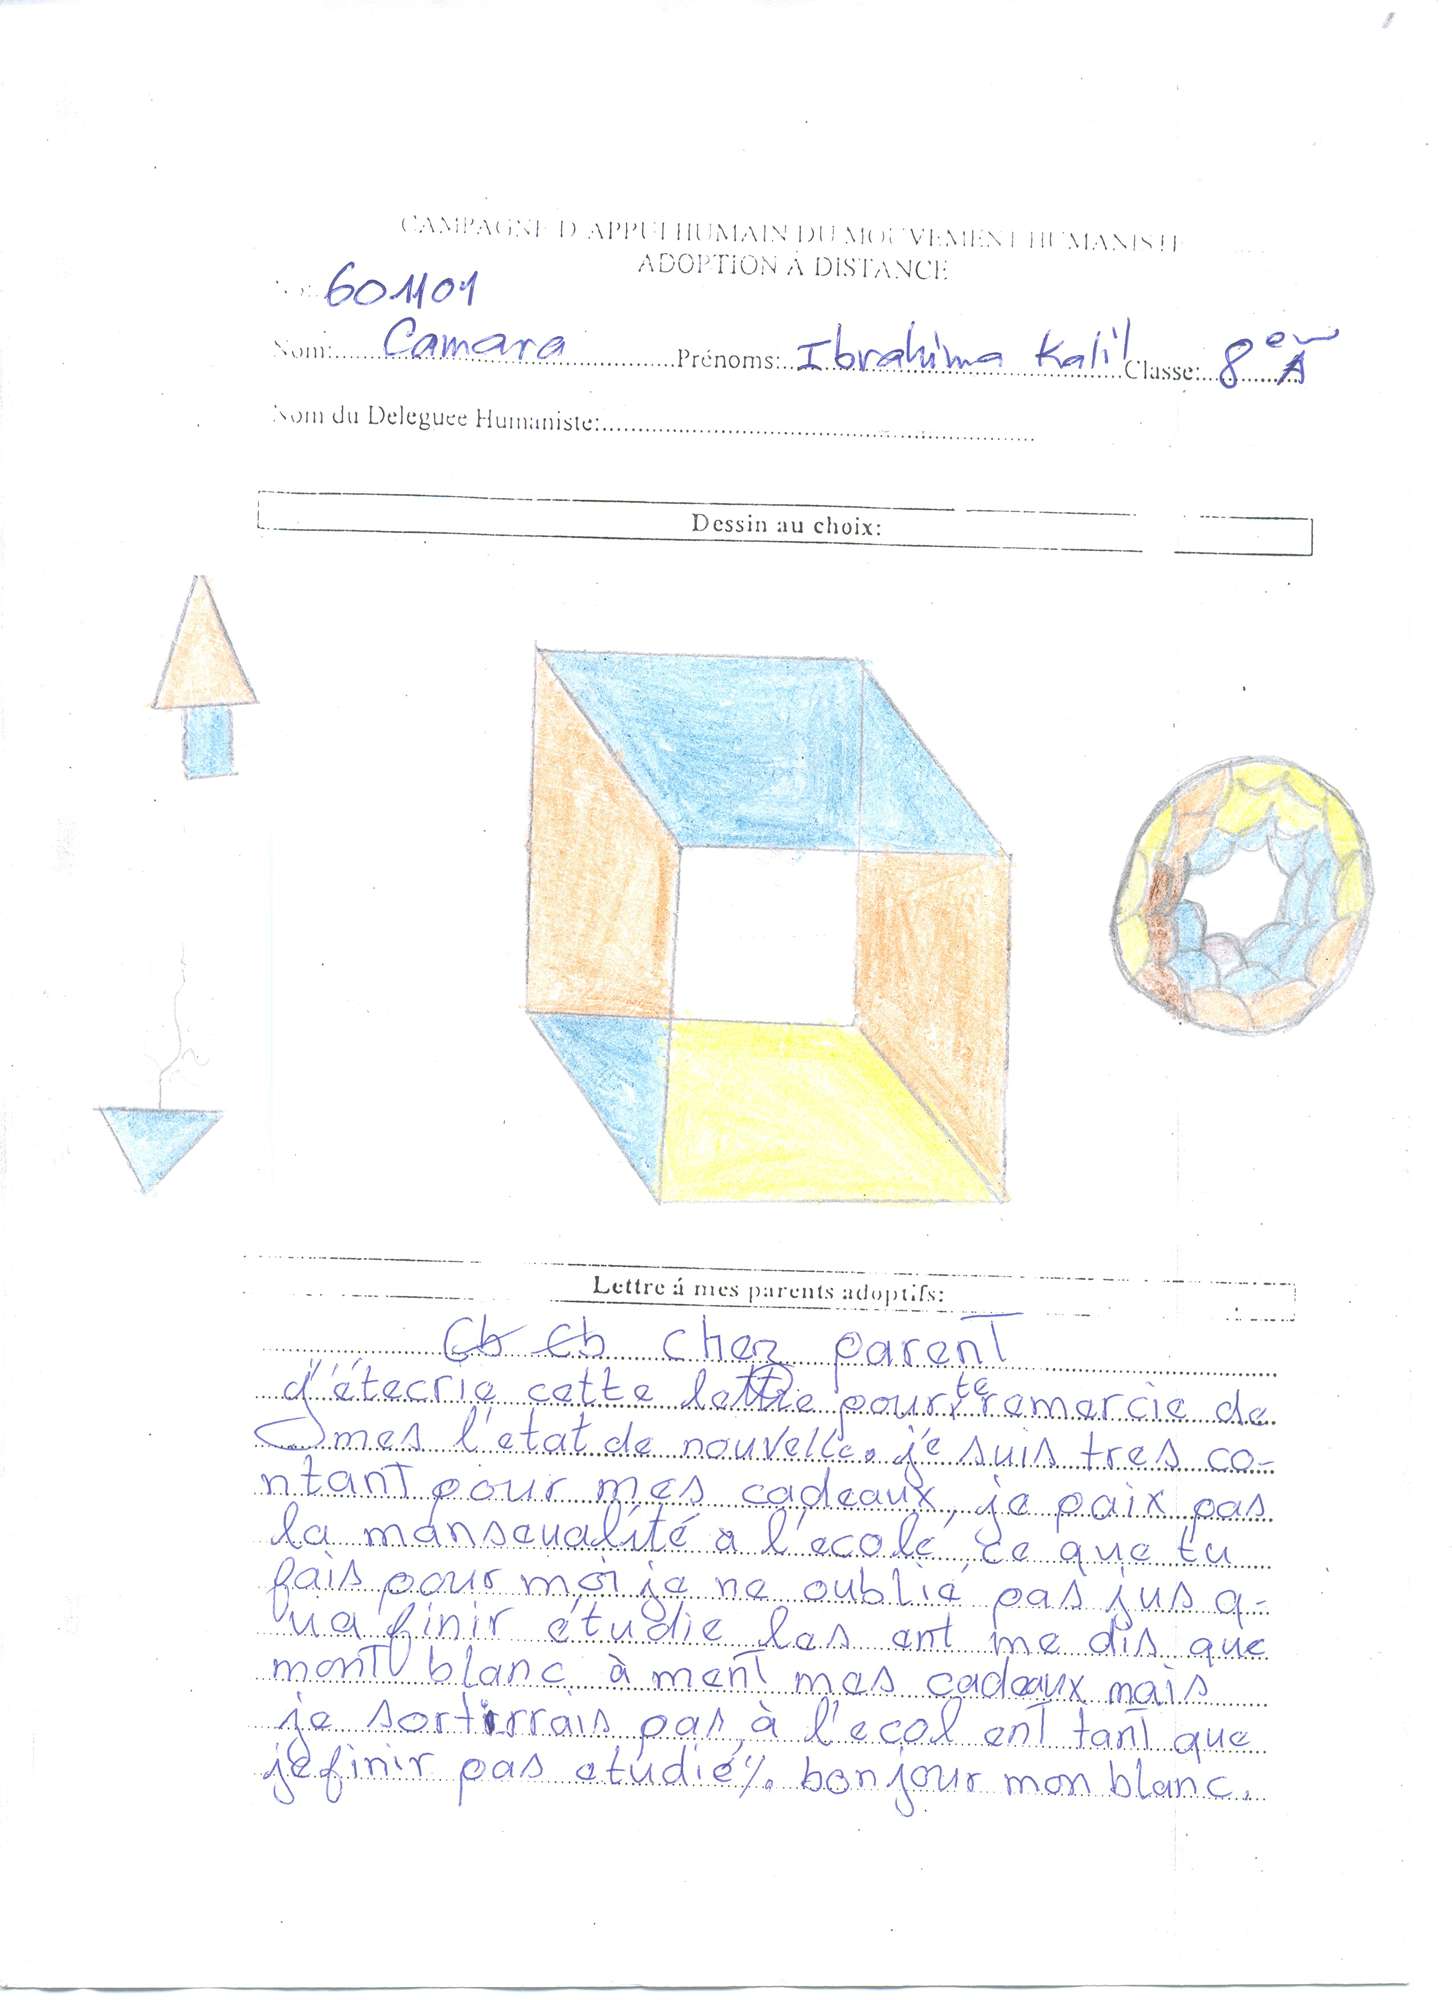 CAMPAGNE D'APPUI HUMAIN DU MOUVEMENT HUMANISTE
ADOPTION À DISTANCE
No: 601101
Nom:.....Camara.....Prénoms:..Ibrahima Kalil Classe:..8e A
Nom du Deleguee Humaniste:..............................
Dessin au choix:
Lettre á mes parents adoptifs:
chez parent
d'étecrie cette lettre pour te remercie de
mes l'etat de nouvelle. je suis tres co-
ntant pour mes cadeaux, je paix pas
la manseualité a l'ecole ce que tu
fais pour moi je ne oublié pas jus q-
ua finir étudie les ent me dis que
mont blanc à ment mes cadeaux mais
je sortirrais pas à l'ecol ent tant que
je finir pas etudié%. bonjour mon blanc.